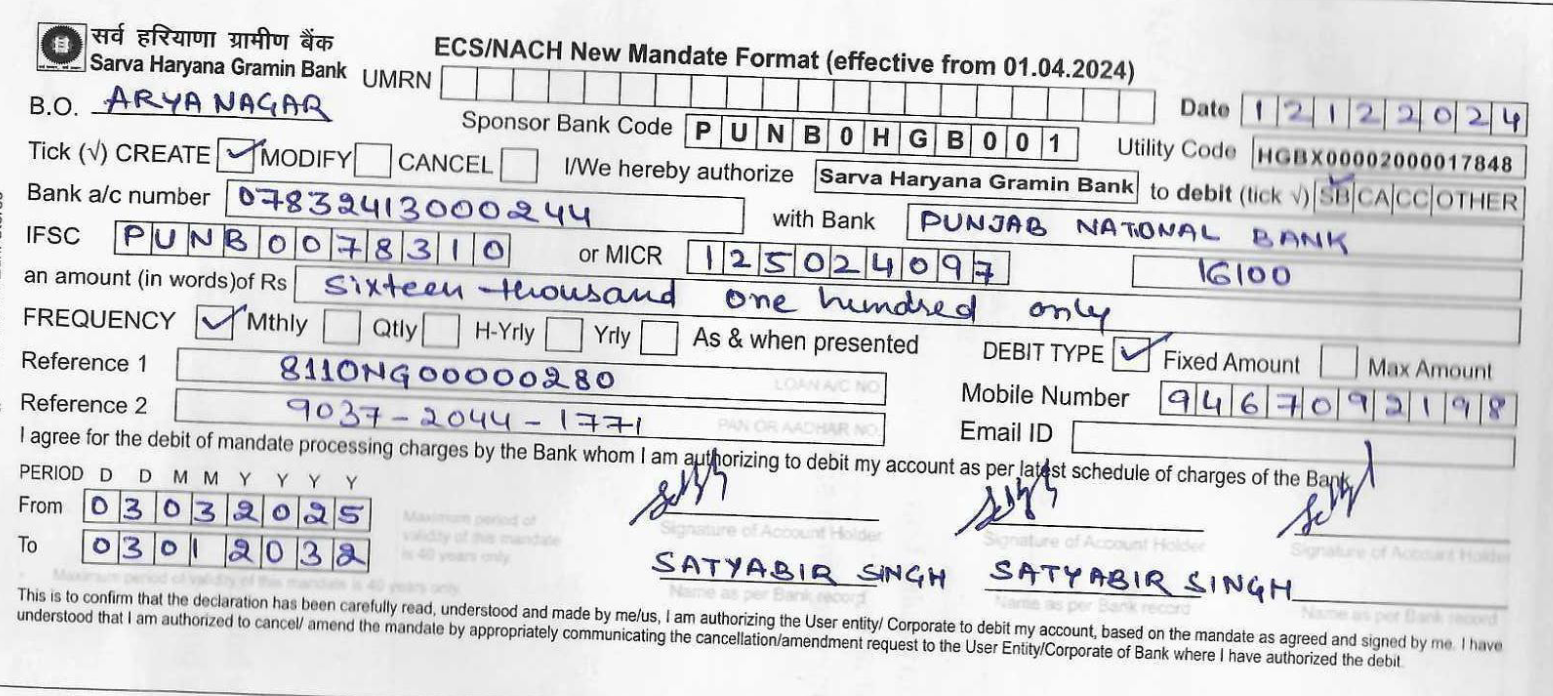 सर्व हरियाणा ग्रामीण बैंक
Sarva Haryana Gramin Bank
ECS/NACH New Mandate Format (effective from 01.04.2024)
UMRN
B.O. ARYA NAGAR
Date 12122024
Sponsor Bank Code PUNB0HGB001
Utility Code HGBX00002000017848
Tick (√) CREATE ✓ MODIFY CANCEL I/We hereby authorize Sarva Haryana Gramin Bank to debit (tick √) SB CA CC OTHER
Bank a/c number 07832413000244 with Bank PUNJAB NATIONAL BANK
IFSC PUNB0078310 or MICR 125024097 16100
an amount (in words)of Rs Sixteen thousand one hundred only
FREQUENCY ✓ Mthly Qtly H-Yrly Yrly As & when presented DEBIT TYPE ✓ Fixed Amount Max Amount
Reference 1 8110NG00000280 LOAN A/C NO. Mobile Number 9467092198
Reference 2 9037-2044-1771 PAN OR AADHAR NO. Email ID
I agree for the debit of mandate processing charges by the Bank whom I am authorizing to debit my account as per latest schedule of charges of the Bank
PERIOD D D M M Y Y Y Y
From 03032025
To 03012032
Maximum period of
validity of this mandate
is 40 years only
Signature of Account Holder Signature of Account Holder Signature of Account Holder
SATYABIR SINGH SATYABIR SINGH
Maximum period of validity of this mandate is 40 years only
Name as per Bank record Name as per Bank record Name as per Bank record
This is to confirm that the declaration has been carefully read, understood and made by me/us, I am authorizing the User entity/ Corporate to debit my account, based on the mandate as agreed and signed by me. I have
understood that I am authorized to cancel/ amend the mandate by appropriately communicating the cancellation/amendment request to the User Entity/Corporate of Bank where I have authorized the debit.